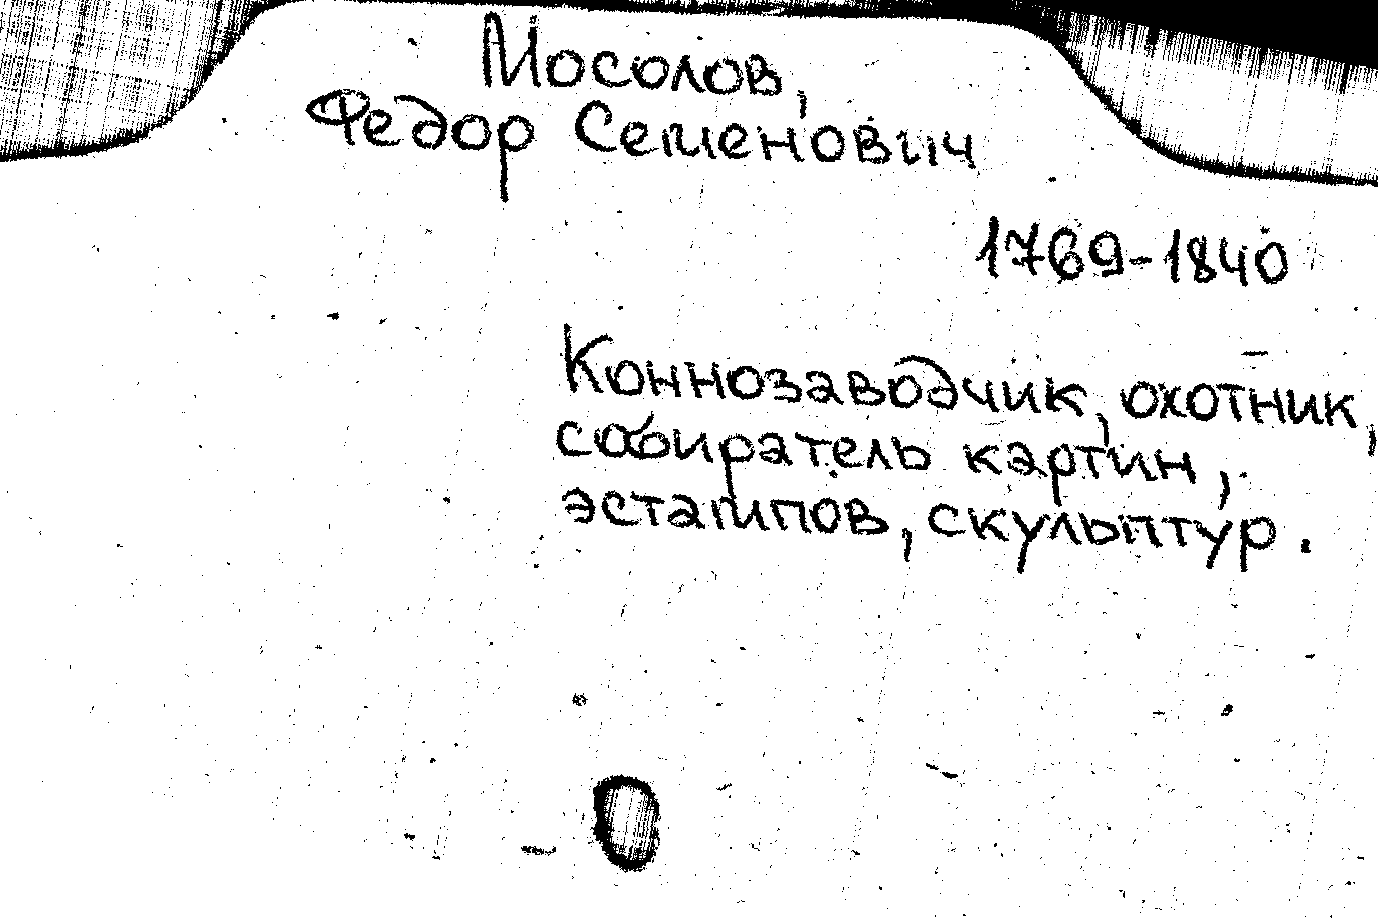 Мосолов,
Федор Семенович
1769-1840
Коннозаводчик, охотник,
собиратель картин,
эстампов, скульптур.